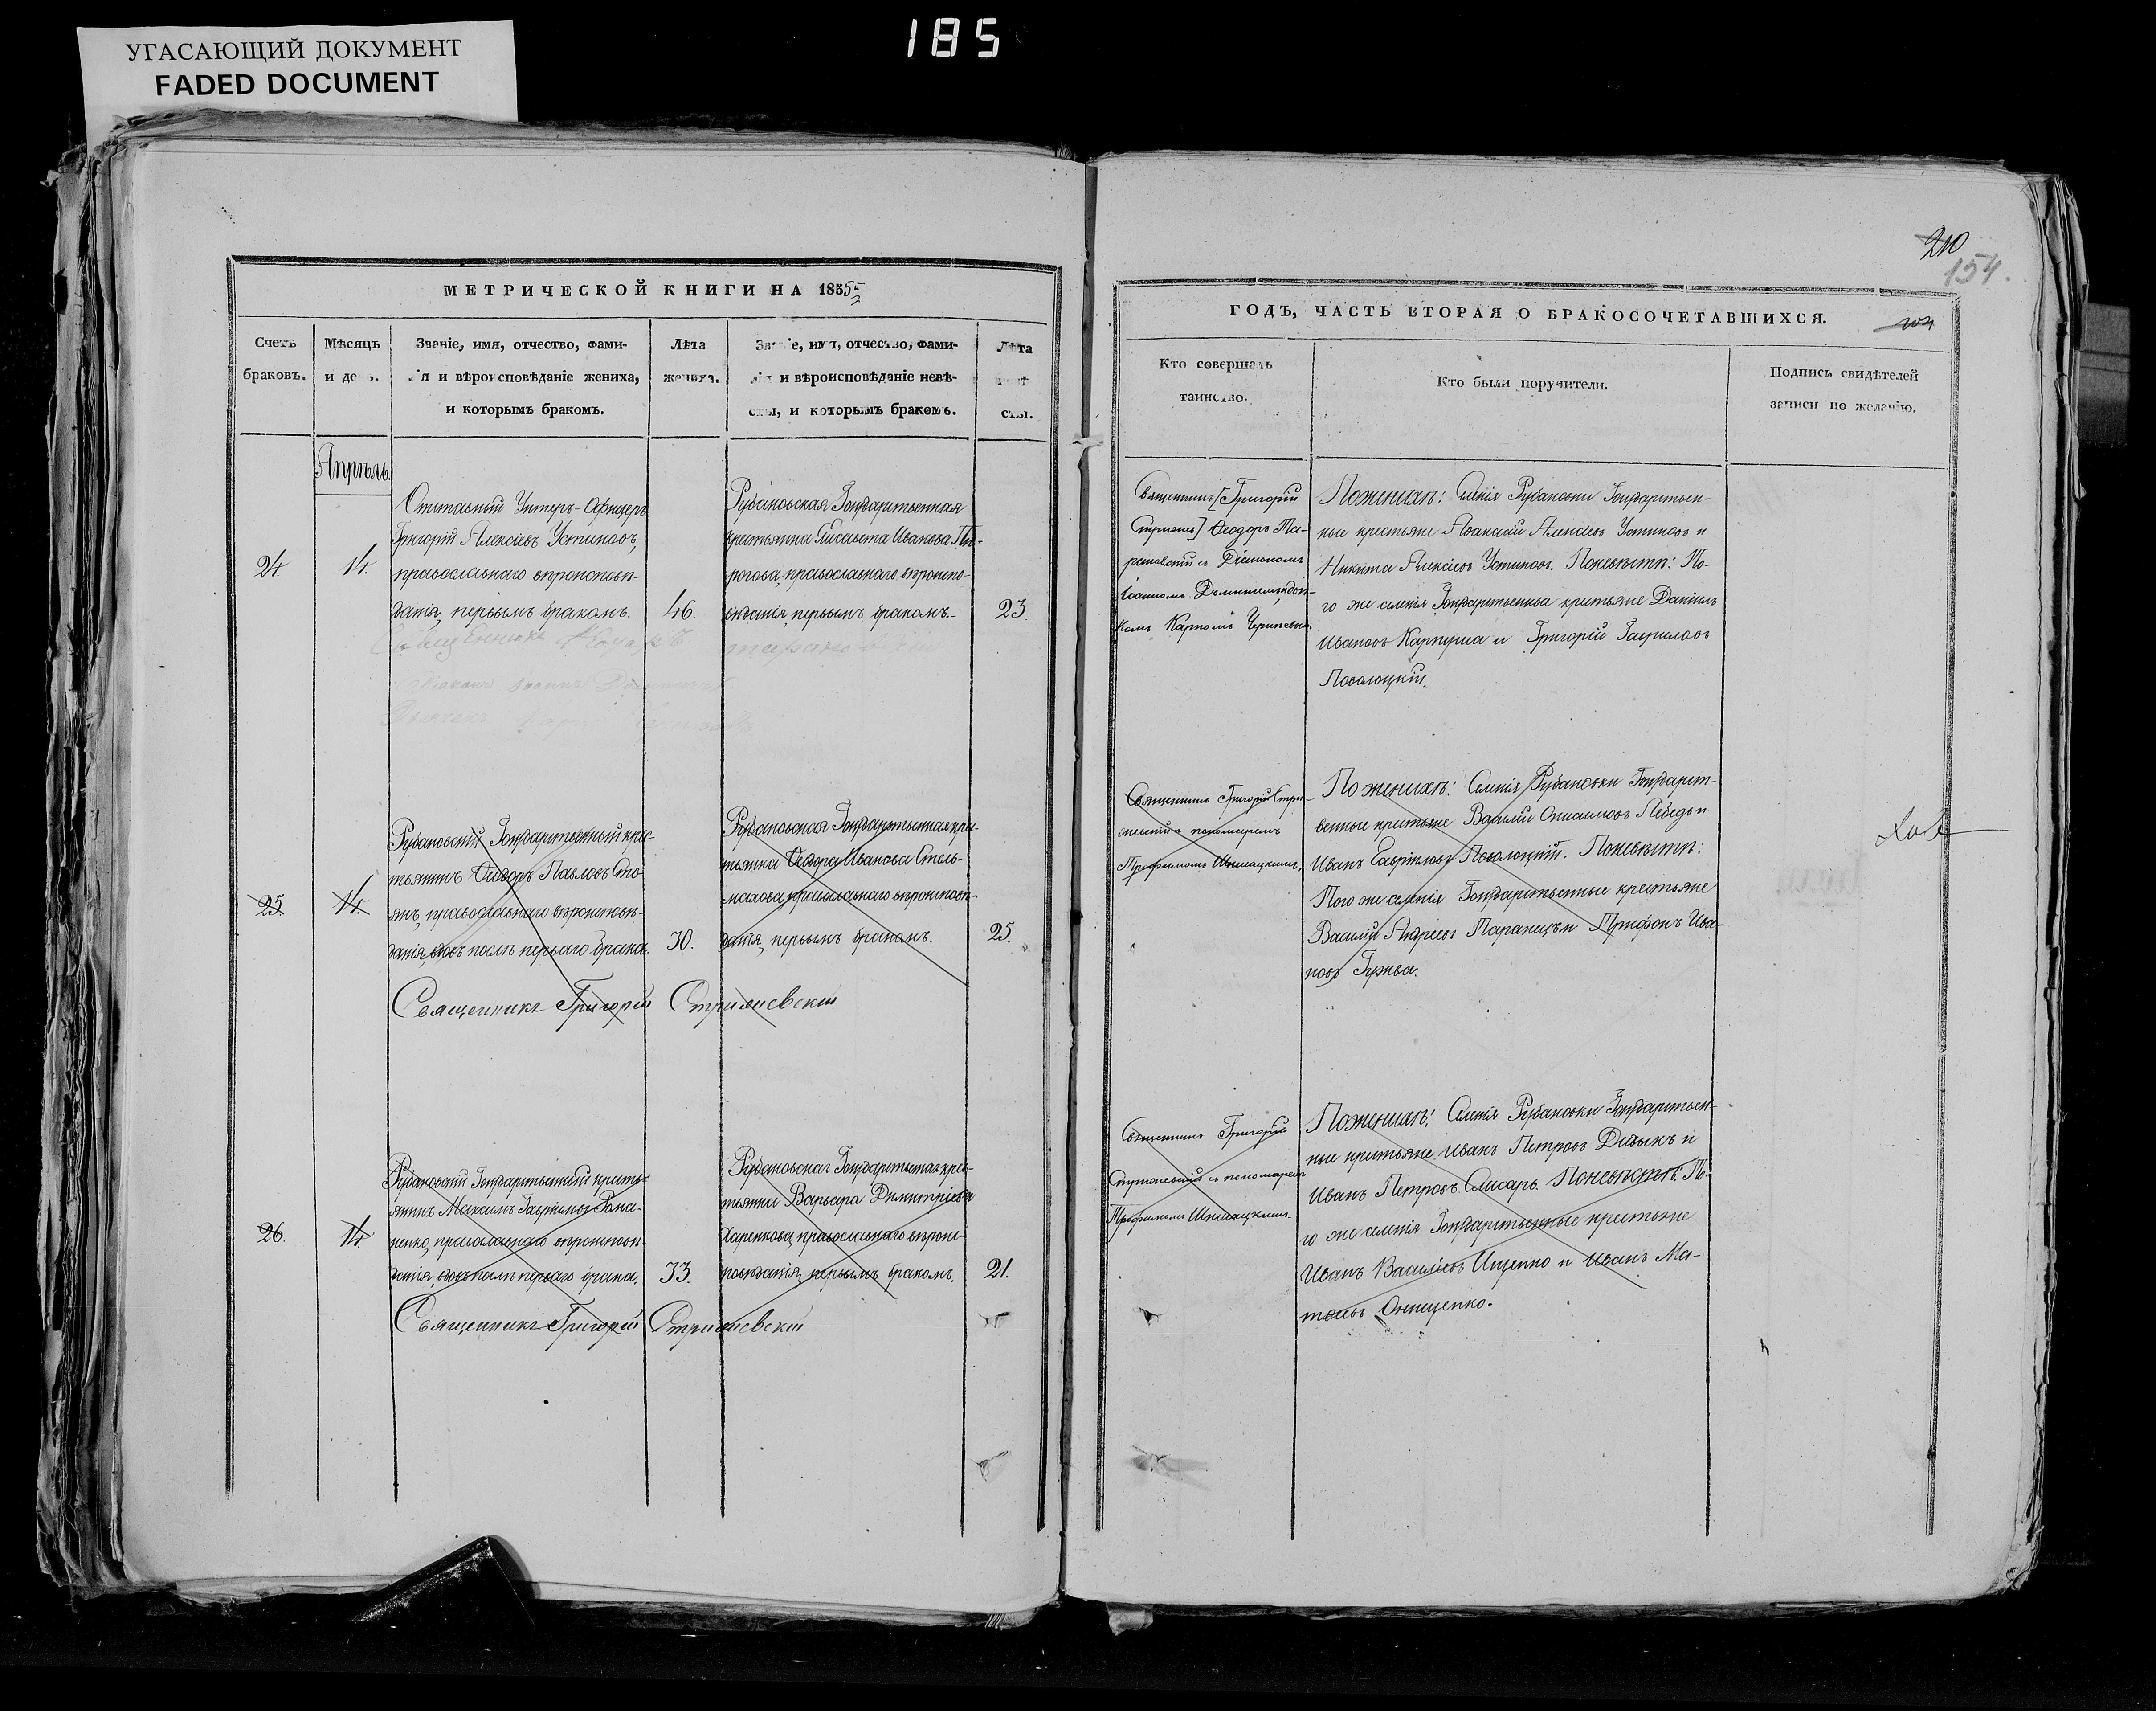 185
УГАСАЮЩИЙ ДОКУМЕНТ
FADED DOCUMENT
МЕТРИЧЕСКОЙ КНИГИ НА 1855
Счетъ браковъ.
Мѣсяцъ и день.
Званіе, имя, отчество, фами-
лія и вѣроисповѣданіе жениха,
и которымъ бракомъ.
Лѣта
жениха.
Званіе, имя, отчество, фами-
лія и вѣроисповѣданіе невѣ-
сты, и которымъ бракомъ.
Лѣта
невѣ-
сты.
Апрѣль
24.
14.
Отставный Унтеръ-Офицеръ
Григорій Алексѣевъ Устиновъ,
православнаго вѣроисповѣ-
данія, первымъ бракомъ.
46.
Рубановская Государственная
крестьянка Елисавета Иванова
православнаго вѣроиспо-
вѣданія, первымъ бракомъ.
23.
Священникъ
25.
14.
Рубановский Государственный крес-
тьянинъ Ѳеодоръ Павловъ Сто-
янъ, православнаго вѣроисповѣ-
данія, вдовъ послѣ перваго брака.
30.
Рубановская Государственная крес-
тьянка Ѳеодора Иванова Стель-
махова, православнаго вѣроисповѣ-
данія, первымъ бракомъ.
25.
Священникъ Григорій
26.
14.
Рубановский Государственный кресть-
янинъ Максимъ Гавриловъ
православнаго вѣроисповѣ-
данія, вдовъ послѣ перваго брака.
33.
Рубановская Государственная крес-
тьянка Варвара Димитріева
Харенкова, православнаго вѣроис-
повѣданія, первымъ бракомъ.
21.
Священникъ Григорій
210
154.
ГОДЪ, ЧАСТЬ ВТОРАЯ О БРАКОСОЧЕТАВШИХСЯ.
204
Кто совершалъ
таинство.
Кто были поручители.
Подпись свидѣтелей
записи по желанію.
Священникъ [Григорій
Ѳеодоръ Та-
рановскій съ Діакономъ
Іоанномъ
Карпомъ
По женихѣ: Селенія Рубановки Государствен-
ные крестьяне Аѳанасій Алексѣевъ Устиновъ и
Никита Алексѣевъ Устиновъ. По невѣстѣ: То-
го же селенія Государственные крестьяне Даніилъ
Ивановъ Карпуша и Григорій Гавриловъ
Поволоцкій.
Священникъ Григорій
съ пономаремъ
Трофимомъ Шпилацкимъ.
По женихѣ: Селенія Рубановки Государст-
венные крестьяне Василій Онисимовъ Лебедь и
Иванъ Гавриловъ Поволоцкій. По невѣстѣ:
Того же селенія Государственные крестьяне
Василій Андреевъ Таранецъ и Трифонъ Ива-
новъ Гужва.
Священникъ Григорій
съ пономаремъ
Трофимомъ Шпилацкимъ.
По женихѣ: Селенія Рубановки Государствен-
ные крестьяне Иванъ Петровъ и
Иванъ Петровъ Слисарь. По невѣстѣ: То-
го же селенія Государственные крестьяне
Иванъ Василіевъ Ищенко и Иванъ Ма-
тѳеевъ Онищенко.